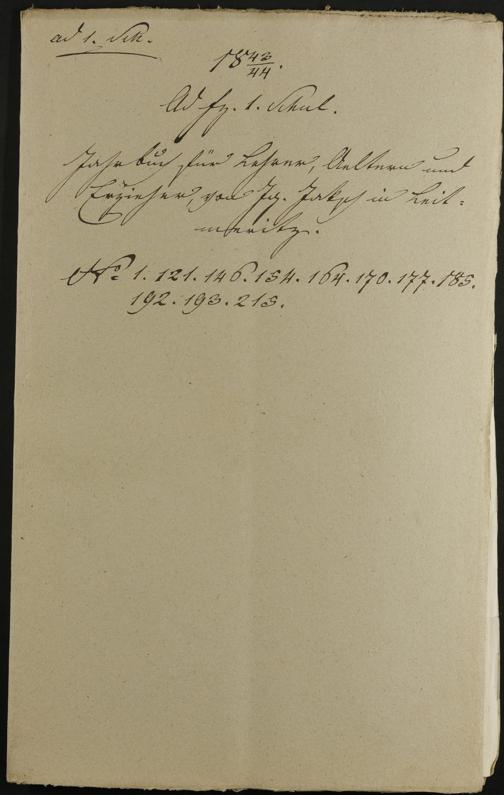 ad 1. Sch.
18 43/44.
Ad fz. 1. Schul.
Jahrbuch für Lehrer, Aeltern und
Erzieher, von Ig. Jaksch in Leit=
meritz.
No. 1. 121. 146. 154. 164. 170. 177. 185.
192. 193. 215.